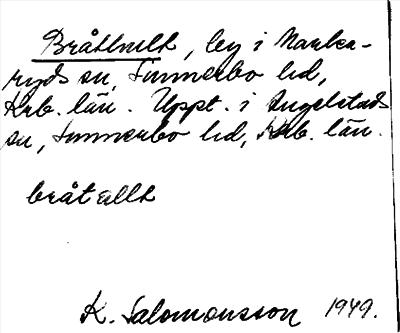 Bråthult, by i Marka-
ryds sn, Sunnerbo hd,
Krb. län. Uppt. i Angelstads
sn, Sunnerbo hd, Krb. län.
bråtallt
K. Salomonsson 1949.